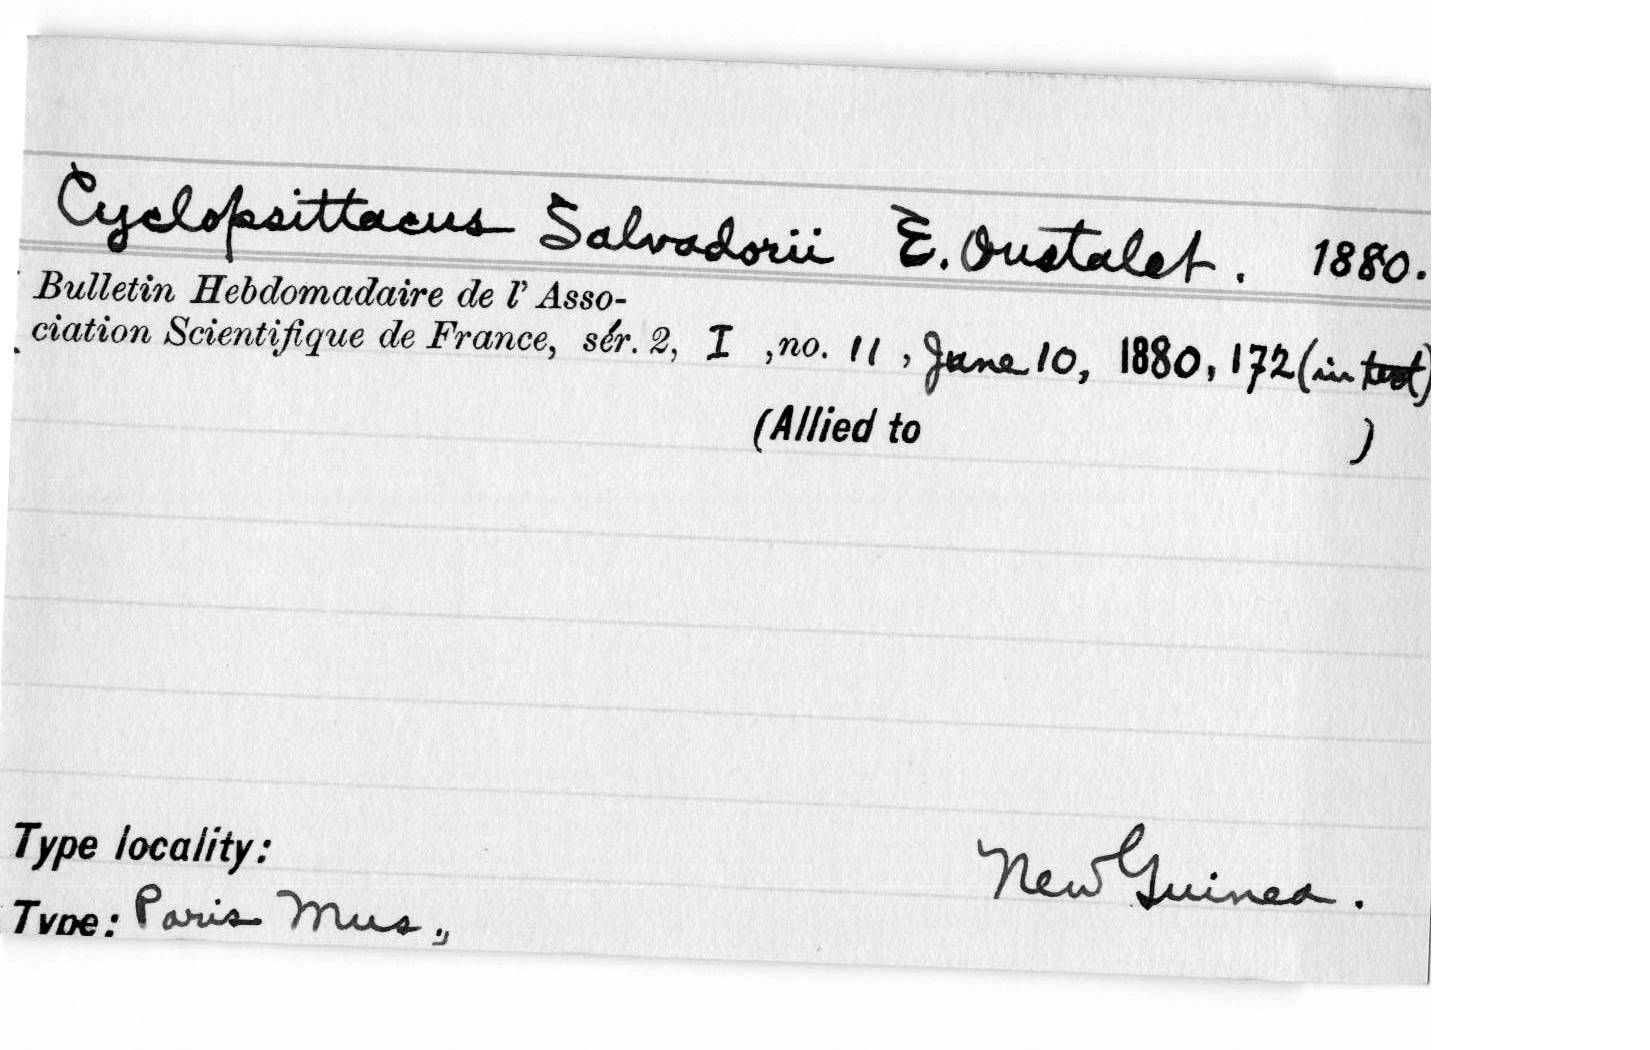 Cyclopsittacus Salvadorii E. Oustalet. 1880.
Bulletin Hebdomadaire de l' Asso-
ciation Scientifique de France, sér. 2, I, no. 11, June 10, 1880, 172 (in text)
(Allied to )
Type locality: New Guinea.
Type: Paris Mus.,